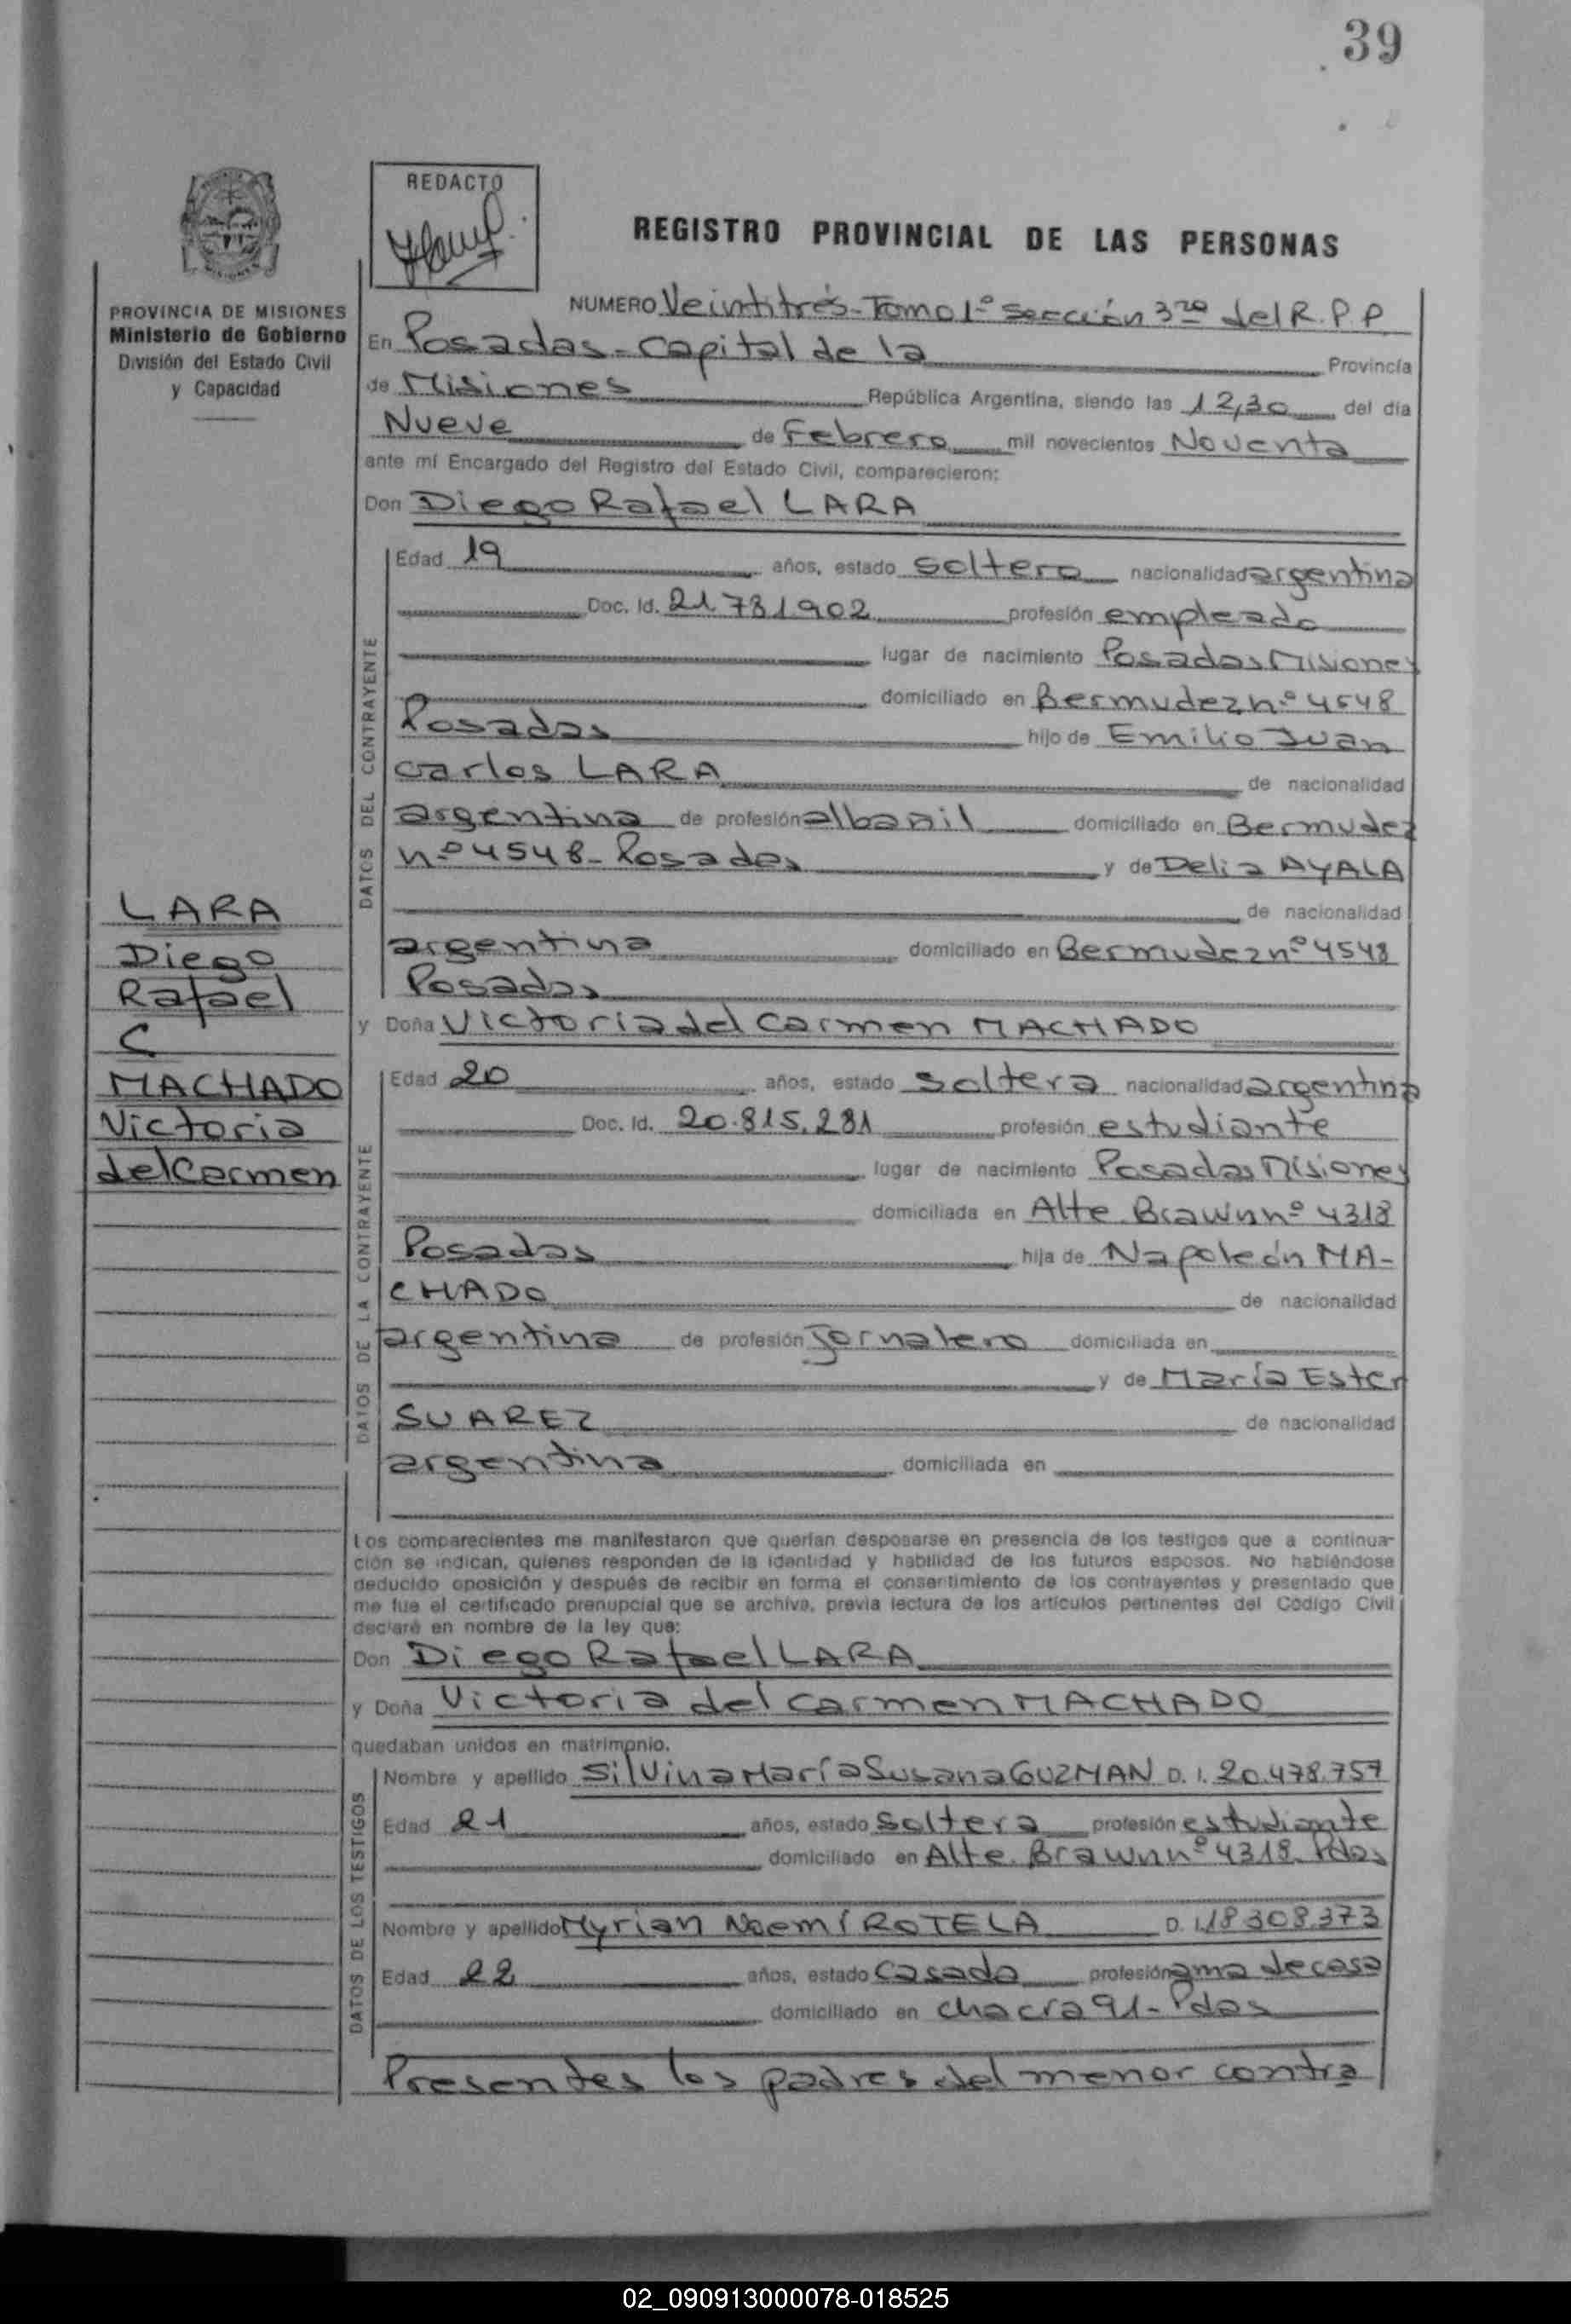 39
REDACTO
REGISTRO PROVINCIAL DE LAS PERSONAS
PROVINCIA DE MISIONES
Ministerio de Gobierno
División del Estado Civil
y Capacidad
NUMERO Veintitrés - Tomo 1º Sección 3ra del R.P.P.
En Posadas - Capital de la Provincia
de Misiones República Argentina, siendo las 12,30 del día
Nueve de Febrero mil novecientos Noventa
ante mí Encargado del Registro del Estado Civil, comparecieron:
Don Diego Rafael LARA
DATOS DEL CONTRAYENTE
Edad 19 años, estado soltero nacionalidad argentina
Doc. Id. 21.781.902 profesión empleado
lugar de nacimiento Posadas Misiones
domiciliado en Bermudez nº 4548
Posadas hijo de Emilio Juan
Carlos LARA de nacionalidad
argentina de profesión albañil domiciliado en Bermudez
nº 4548 - Posadas y de Delia AYALA
de nacionalidad
argentina domiciliado en Bermudez nº 4548
Posadas
y Doña Victoria del Carmen MACHADO
LARA
Diego
Rafael
C
MACHADO
Victoria
del Carmen
DATOS DE LA CONTRAYENTE
Edad 20 años, estado soltera nacionalidad argentina
Doc. Id. 20.815.281 profesión estudiante
lugar de nacimiento Posadas Misiones
domiciliada en Alte. Brawn nº 4318
Posadas hija de Napoleón MA-
CHADO de nacionalidad
argentina de profesión Jornalero domiciliada en
y de María Ester
SUAREZ de nacionalidad
argentina domiciliada en
Los comparecientes me manifestaron que querían desposarse en presencia de los testigos que a continua-
ción se indican, quienes responden de la identidad y habilidad de los futuros esposos. No habiéndose
deducido oposición y después de recibir en forma el consentimiento de los contrayentes y presentado que
me fue el certificado prenupcial que se archiva, previa lectura de los artículos pertinentes del Código Civil
declaré en nombre de la ley que:
Don Diego Rafael LARA
y Doña Victoria del Carmen MACHADO
quedaban unidos en matrimonio.
DATOS DE LOS TESTIGOS
Nombre y apellido Silvina María Susana GUZMAN D. I. 20.478.757
Edad 21 años, estado soltera profesión estudiante
domiciliado en Alte. Brawn nº 4318 Pdas
Nombre y apellido Myrian Noemí ROTELA D. I. 18.308.373
Edad 22 años, estado casada profesión ama de casa
domiciliado en chacra 91 - Pdas
Presentes los padres del menor contra
02_090913000078-018525